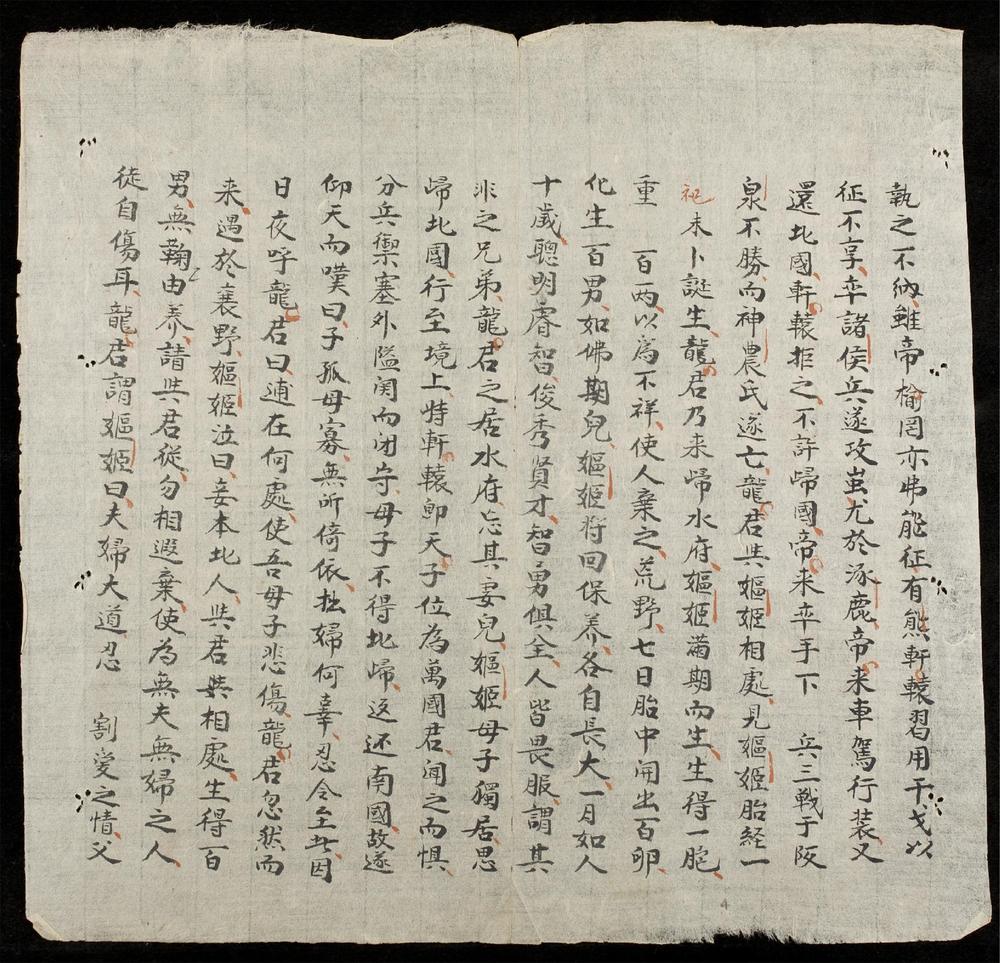 執之不納雖帝榆罔亦弗能征有熊軒轅習用干戈以
征不享率諸侯兵遂攻蚩尤於涿鹿帝来車駕行装又
還北國軒轅拒之不許歸國帝来率手下 兵三戦于阪
泉不勝而神農氏遂亡龍君與嫗姬相處見嫗姬胎経一
祀未卜誕生龍君乃来歸水府嫗姬滿期而生生得一胞
重 一百两以為不祥使人棄之荒野七日胎中開出百卵
化生百男如佛期兒嫗姬将回保养各自長大一月如人
十歲聰明睿智俊秀賢才智勇俱全人皆畏服謂其
非之兄弟龍君之居水府忘其妻兒嫗姬母子獨居思
歸北國行至境上時軒轅即天子位為萬國君闻之而惧
分兵禦塞外隘関而闭守母子不得北歸返还南國故遂
仰天而嘆曰子孤母寡無所倚依拙婦何辜忍令至此因
日夜呼龍君曰逋在何處使吾母子悲傷龍君忽然而
来遇於襄野嫗姬泣曰妾本北人與君共相處生得百
男無鞠由养請與君従勿相遐棄使為無夫無婦之人
徒自傷耳龍君謂嫗姬曰夫婦大道忍 割愛之情父